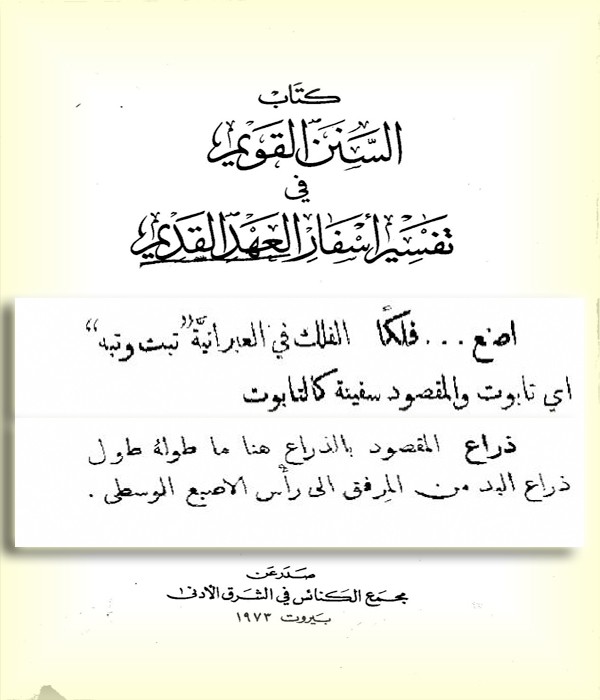 كتاب
السنن القويم
في
تفسير أسفار العهد القديم
اصنع... فلكًا الفلك في العبرانيَّة "تبت وتبه"
اي تابوت والمقصود سفينة كالتابوت
ذراع المقصود بالذراع هنا ما طولهُ طول
ذراع اليد من المِرفق الى رأس الاصبع الوسطى.
صدر عن
مجمع الكنائس في الشرق الأدنى
بيروت ١٩٧٣